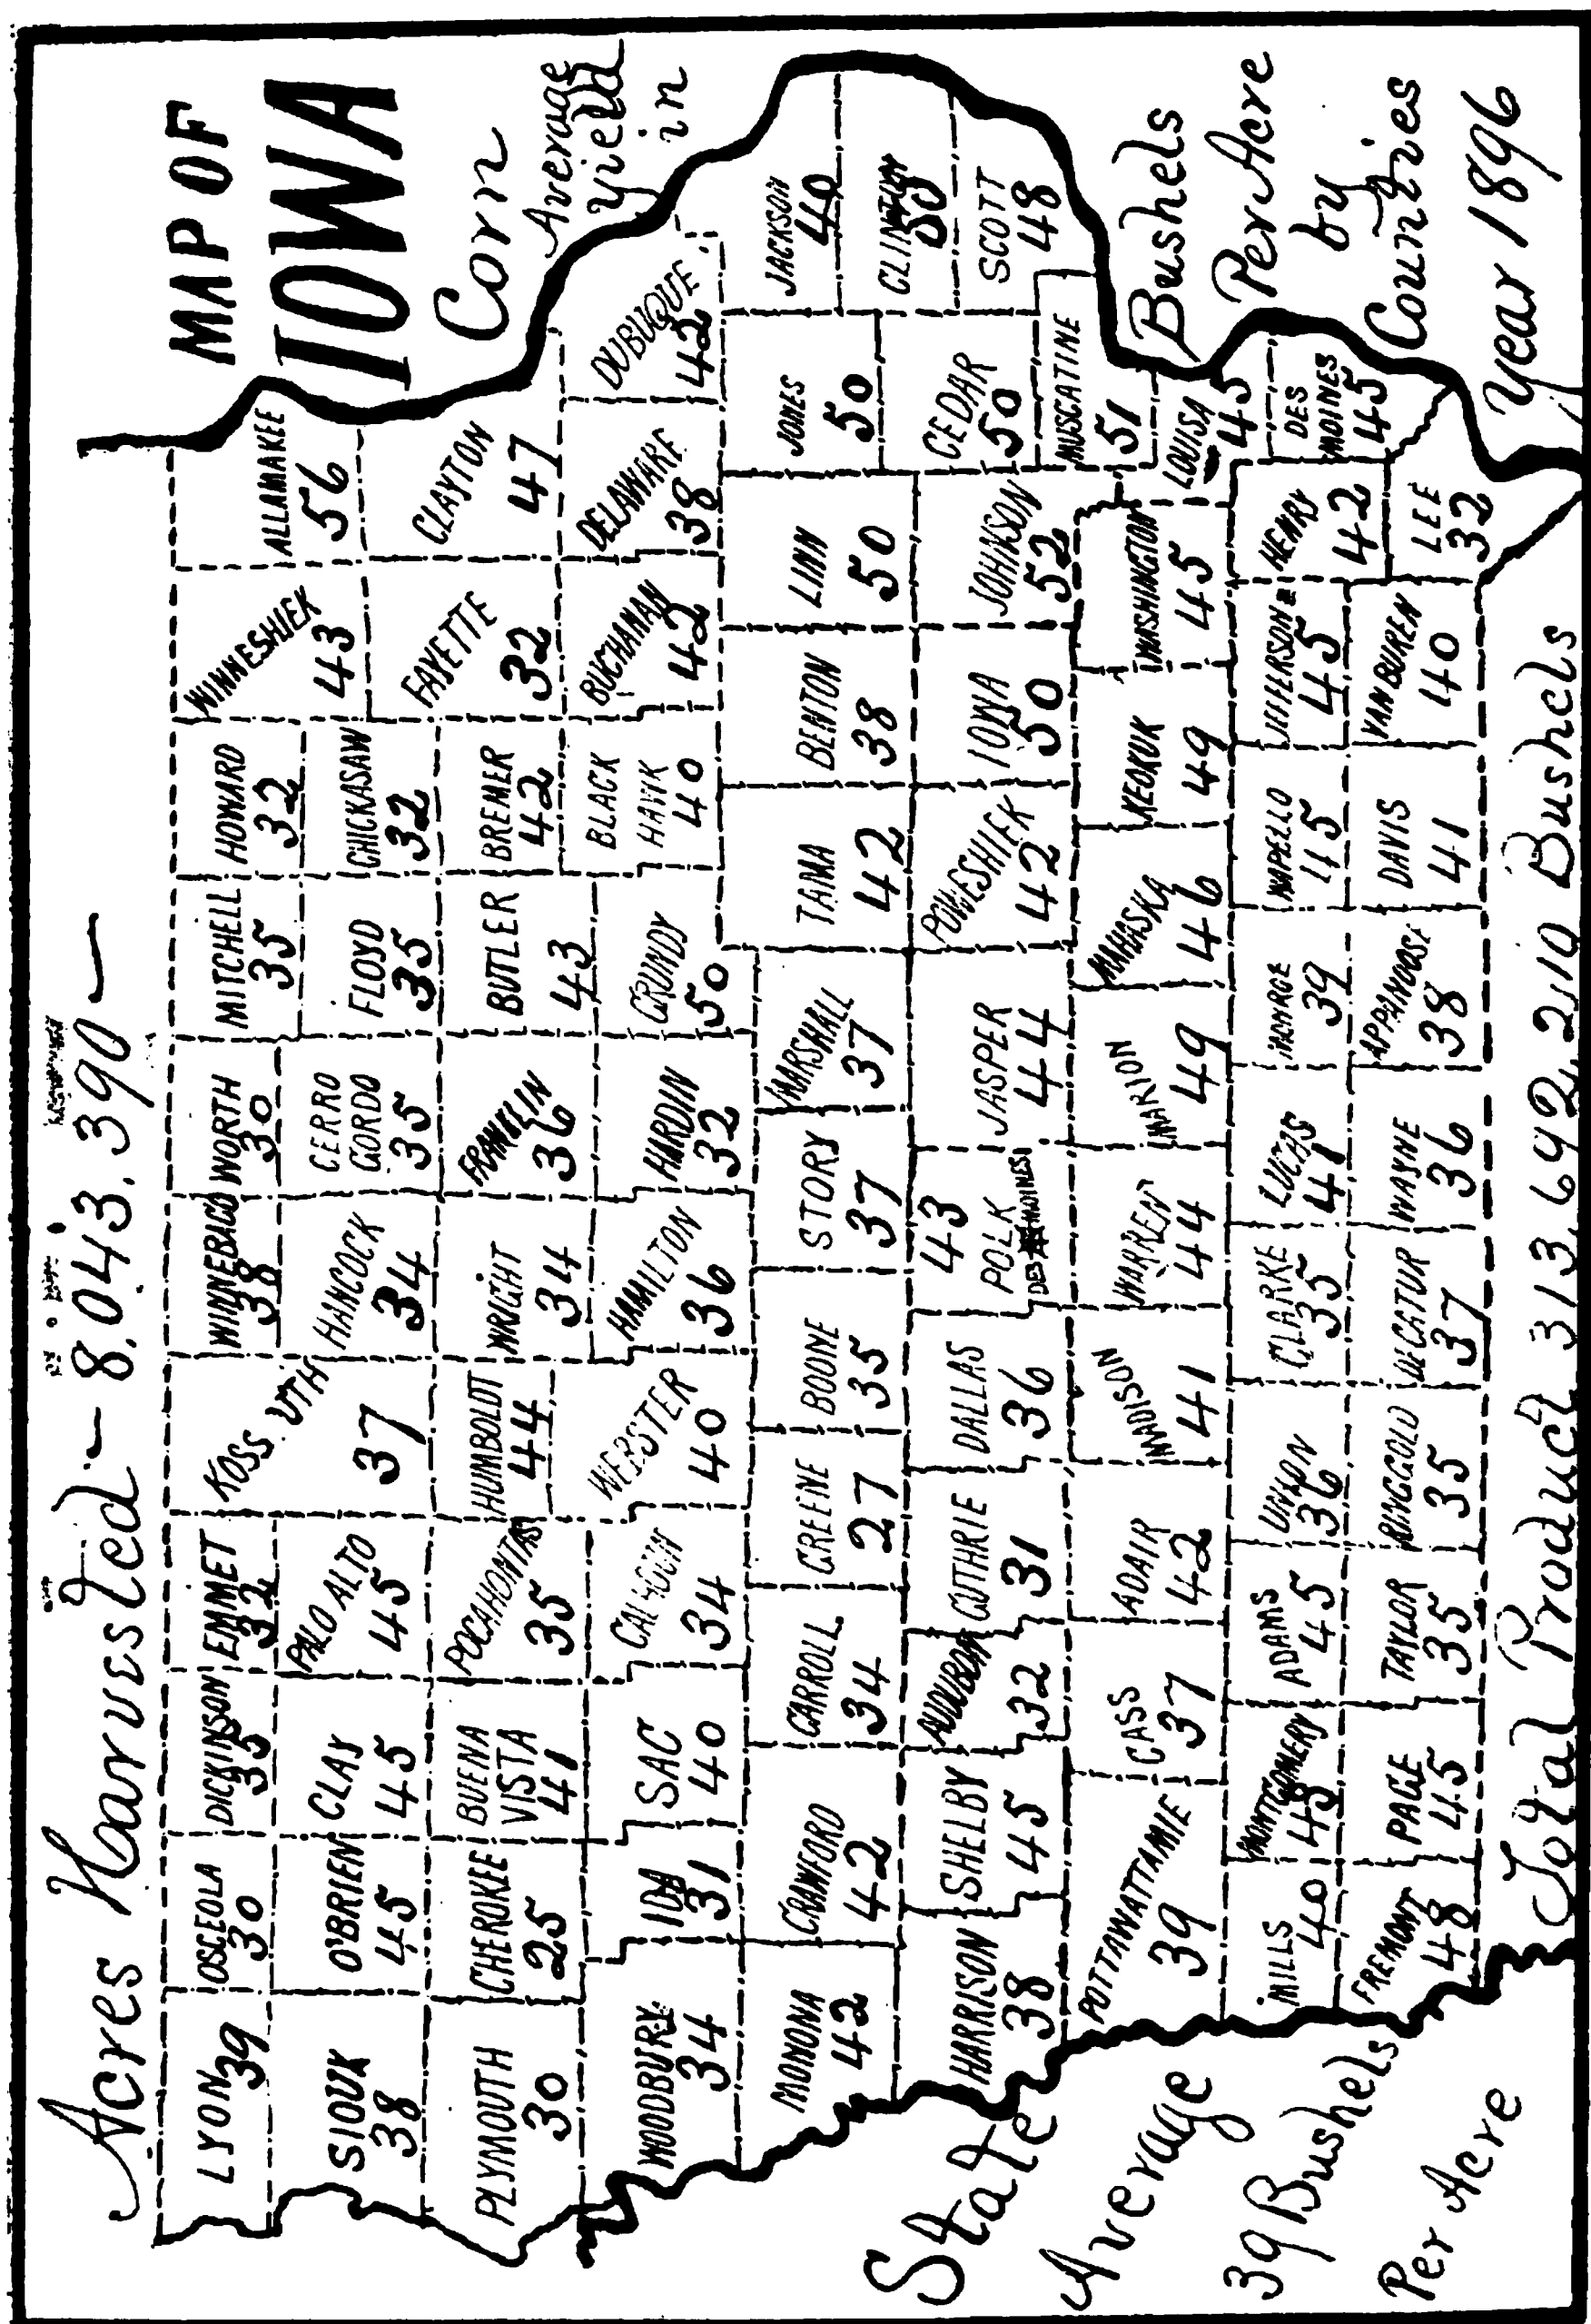 Acres Harvested — 8,043,390 —
MAP OF
IOWA
Corn
Average
Yield
in
Bushels
Per Acre
by
Counties
Year 1896
LYON
39
OSCEOLA
30
DICKINSON
35
EMMET
32
KOSSUTH
37
WINNEBAGO
38
WORTH
30
MITCHELL
35
HOWARD
32
WINNESHIEK
43
ALLAMAKEE
56
SIOUX
38
O'BRIEN
45
CLAY
45
PALO ALTO
45
HANCOCK
34
CERRO
GORDO
35
FLOYD
35
CHICKASAW
32
FAYETTE
32
CLAYTON
47
PLYMOUTH
30
CHEROKEE
25
BUENA
VISTA
41
POCAHONTAS
35
HUMBOLDT
44
WRIGHT
34
FRANKLIN
36
BUTLER
43
BREMER
42
WOODBURY
34
IDA
31
SAC
40
CALHOUN
34
WEBSTER
40
HAMILTON
36
HARDIN
32
GRUNDY
50
BLACK
HAWK
40
BUCHANAN
42
DELAWARE
38
DUBUQUE
42
MONONA
42
CRAWFORD
42
CARROLL
34
GREENE
27
BOONE
35
STORY
37
MARSHALL
37
TAMA
42
BENTON
38
LINN
50
JONES
50
JACKSON
40
CLINTON
50
HARRISON
38
SHELBY
45
AUDUBON
32
GUTHRIE
31
DALLAS
36
43
POLK
DES MOINES
JASPER
44
POWESHIEK
42
IOWA
50
JOHNSON
52
CEDAR
50
SCOTT
48
MUSCATINE
51
POTTAWATTAMIE
39
CASS
37
ADAIR
42
MADISON
41
WARREN
44
MARION
49
MAHASKA
46
KEOKUK
49
WASHINGTON
45
LOUISA
45
MILLS
40
MONTGOMERY
43
ADAMS
45
UNION
36
CLARKE
35
LUCAS
41
MONROE
39
WAPELLO
45
JEFFERSON
45
HENRY
42
DES
MOINES
45
FREMONT
48
PAGE
45
TAYLOR
35
RINGGOLD
35
DECATUR
37
WAYNE
36
APPANOOSE
38
DAVIS
41
VAN BUREN
40
LEE
32
State
Average
39 Bushels
Per Acre
Total Product 313,692,210 Bushels